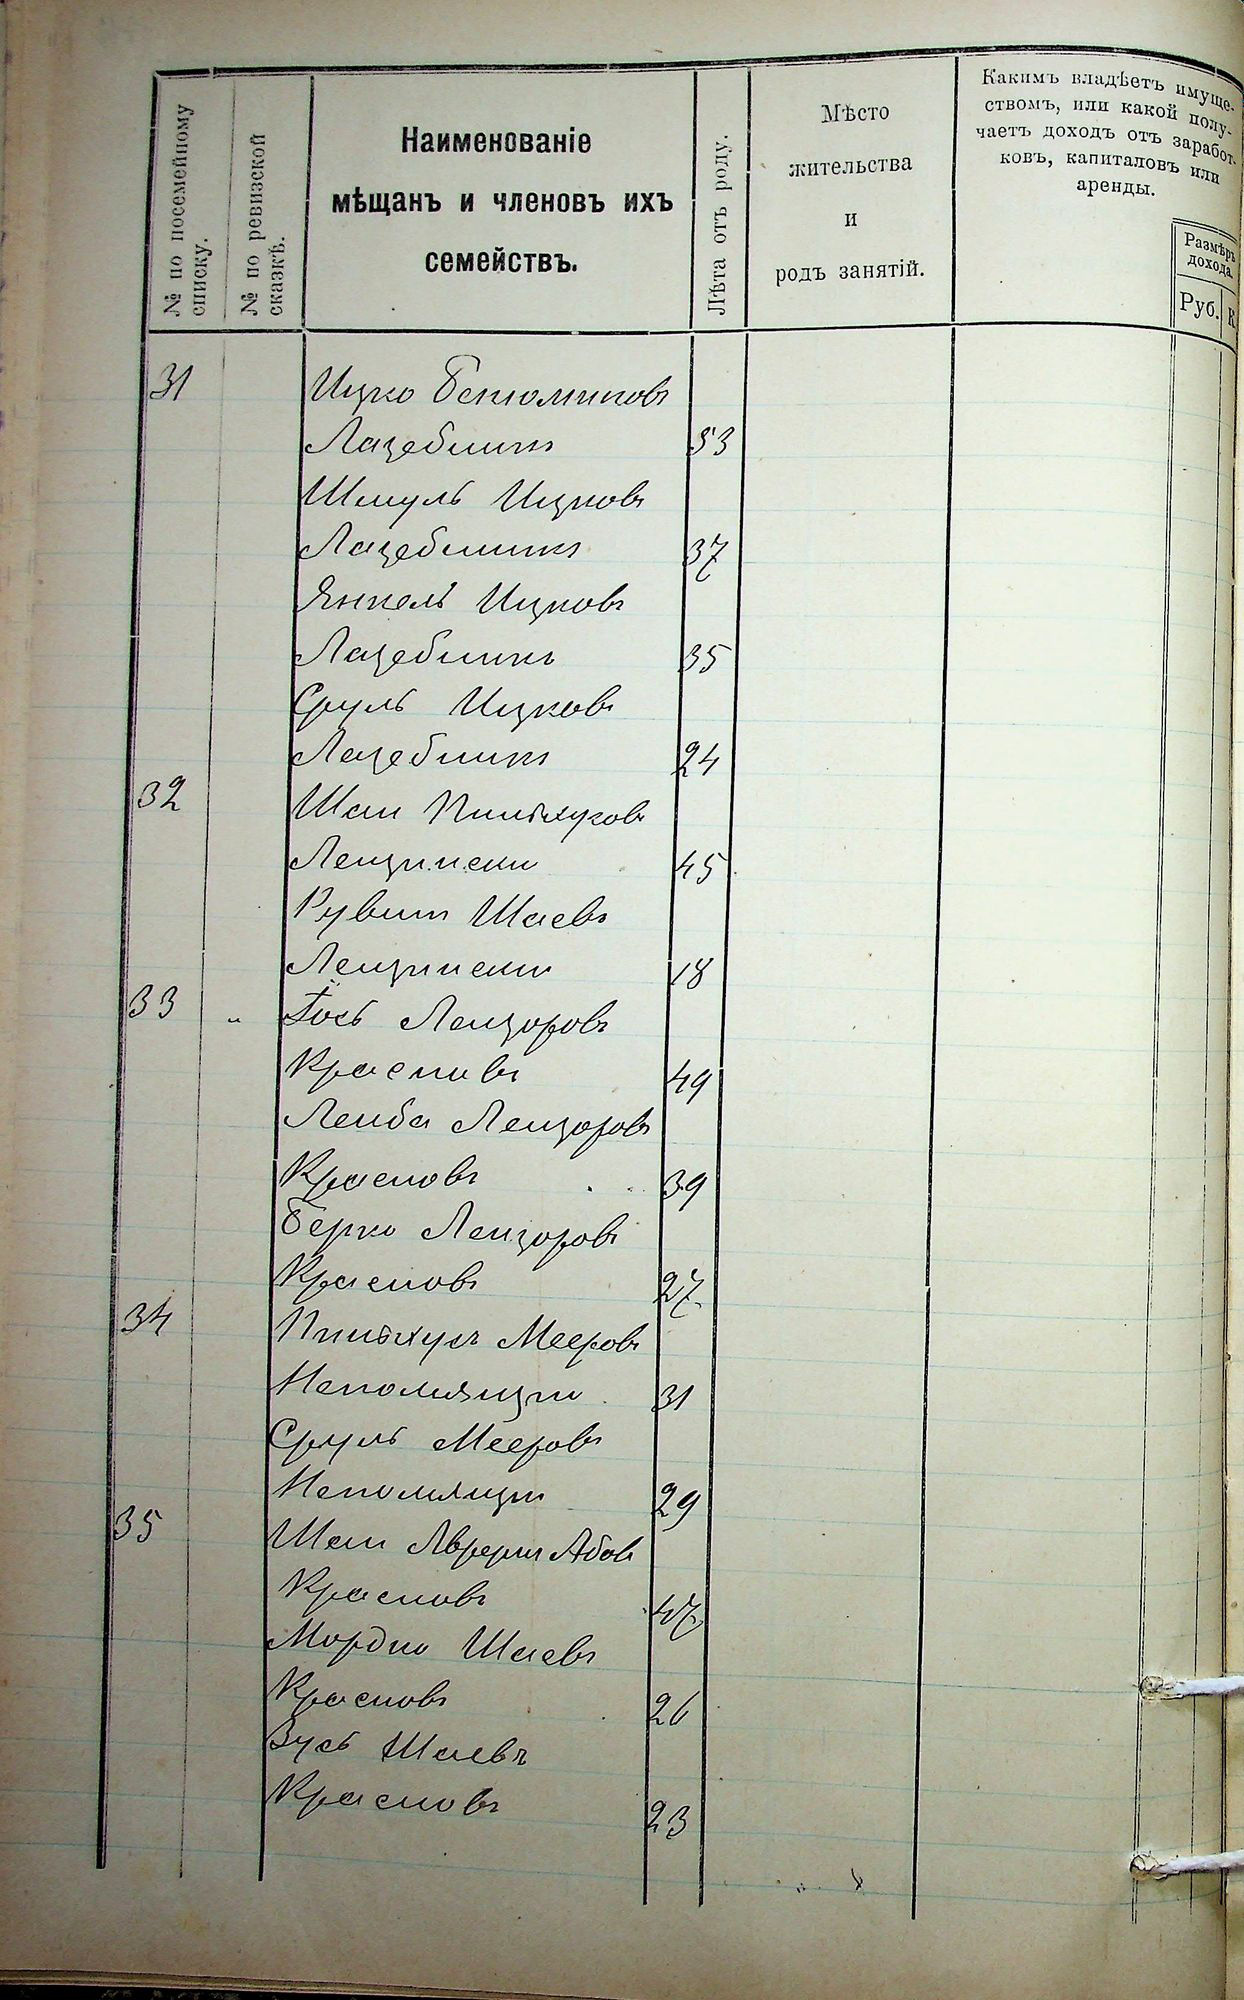 № по посемейному
списку.
№ по ревизской
сказкѣ.
Наименованіе
мѣщанъ и членовъ ихъ
семействъ.
Лѣта отъ роду.
Мѣсто
жительства
и
родъ занятій.
Какимъ владѣетъ имуще-
ствомъ, или какой полу-
чаетъ доходъ отъ заработ-
ковъ, капиталовъ или
аренды.
Размѣръ
дохода.
Руб. К
31 Ицко Беньоминовъ
Лазебникъ 53
Шмуль Ицковъ
Лазебникъ 37
Янкель Ицковъ
Лазебникъ 35
Сруль Ицковъ
Лазебникъ 24
32 Шая Пиньхусовъ
45
Рувинъ Шаевъ
18
33 " Лейзоровъ
Красновъ 49
Лейба Лейзоровъ
Красновъ 39
Берко Лейзоровъ
Красновъ 27
34 Пиньхусъ Мееровъ
31
Сруль Мееровъ
29
35 Шая Абовъ
Красновъ 47
Мордко Шаевъ
Красновъ 26
Зусь Шаевъ
Красновъ 23